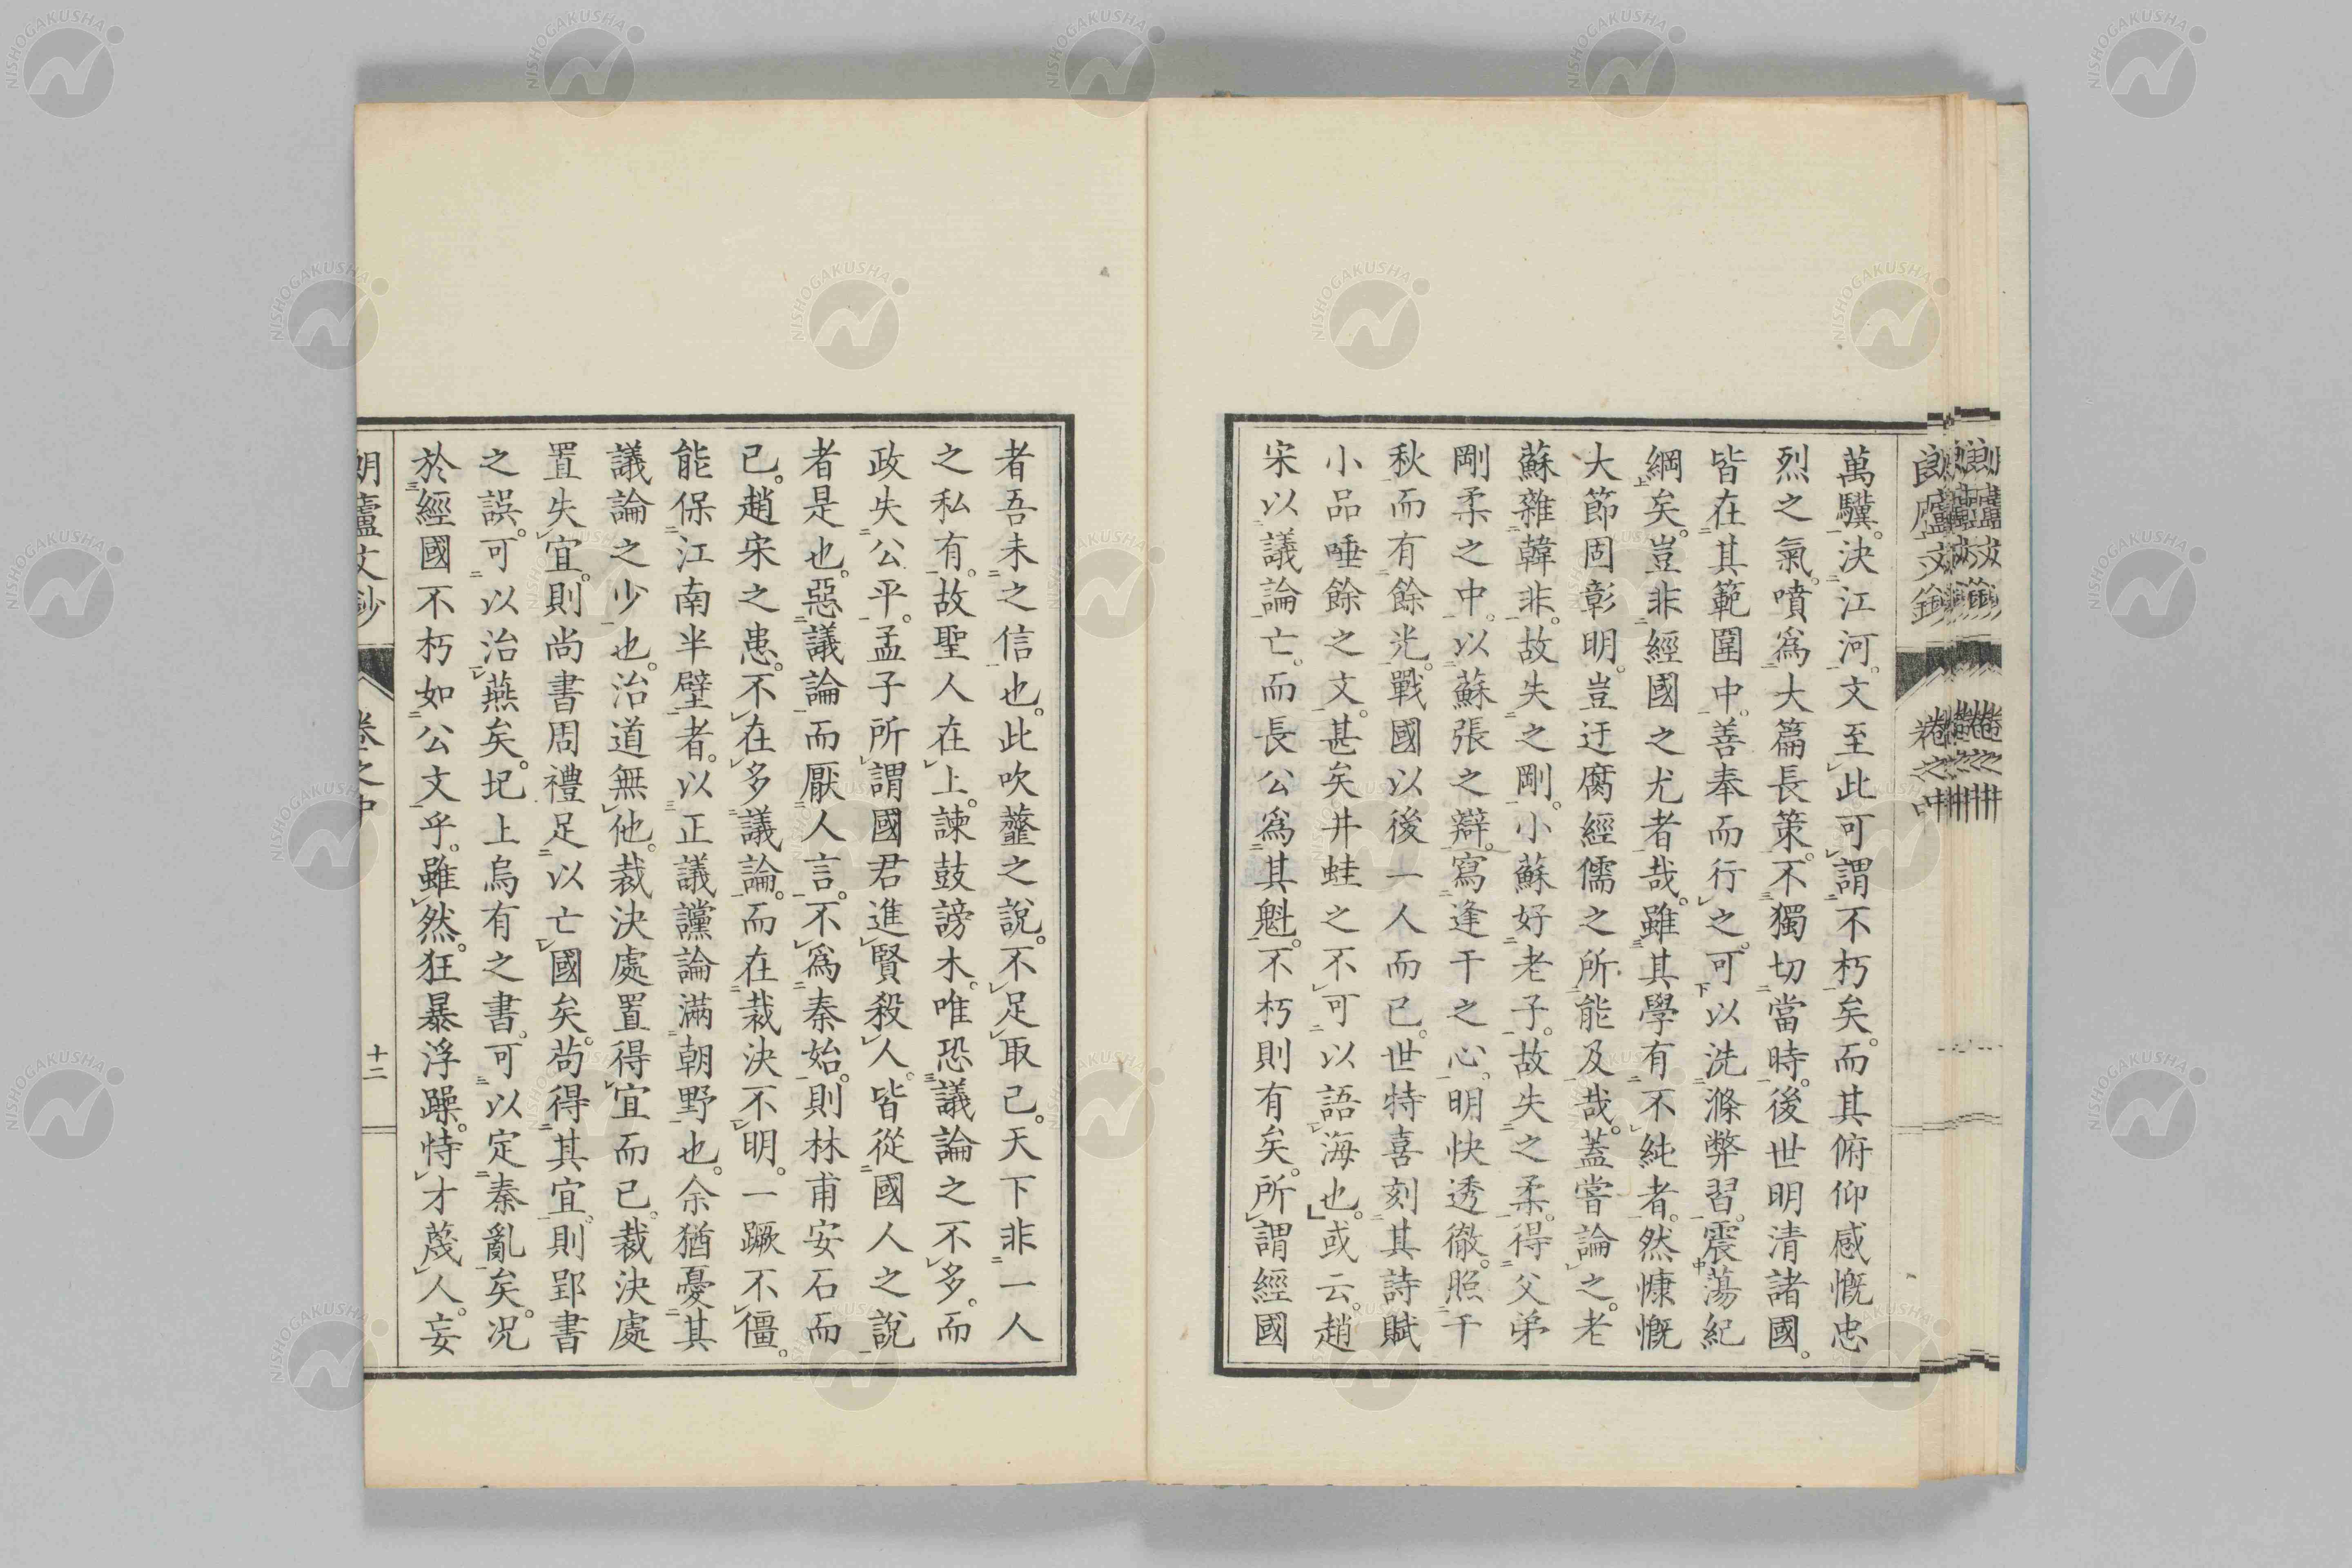 萬驥。決江河。文至此可謂不朽矣。而其俯仰感慨忠
烈之氣。噴爲大篇長策。不獨切當時。後世明清諸國。
皆在其範圍中。善奉而行之。可以洗滌弊習。震蕩紀
綱矣。豈非經國之尤者哉。雖其學有不純者。然慷慨
大節固彰明。豈迂腐經儒之所能及哉。蓋嘗論之。老
蘇雜韓非。故失之剛。小蘇好老子。故失之柔。得父弟
剛柔之中。以蘇張之辯。寫逢干之心。明快透徹。照千
秋而有餘光。戰國以後一人而已。世特喜刻其詩賦
小品唾餘之文。甚矣井蛙之不可以語海也。或云。趙
宋以議論亡。而長公爲其魁。不朽則有矣。所謂經國
者吾未之信也。此吹韲之說。不足取已。天下非一人
之私有。故聖人在上。諫鼓謗木。唯恐議論之不多。而
政失公平。孟子所謂國君進賢殺人。皆從國人之說
者是也。惡議論而厭人言。不爲秦始。則林甫安石而
已。趙宋之患。不在多議論。而在裁決不明。一蹶不僵。
能保江南半壁者。以正議讜論滿朝野也。余猶憂其
議論之少也。治道無他。裁決處置得宜而已。裁決處
置失宜。則尚書周禮足以亡國矣。苟得其宜。則郢書
之誤。可以治燕矣。圯上烏有之書。可以定秦亂矣。况
於經國不朽如公文乎。雖然。狂暴浮躁。恃才蔑人。妄
朗廬文鈔
卷之中
十二